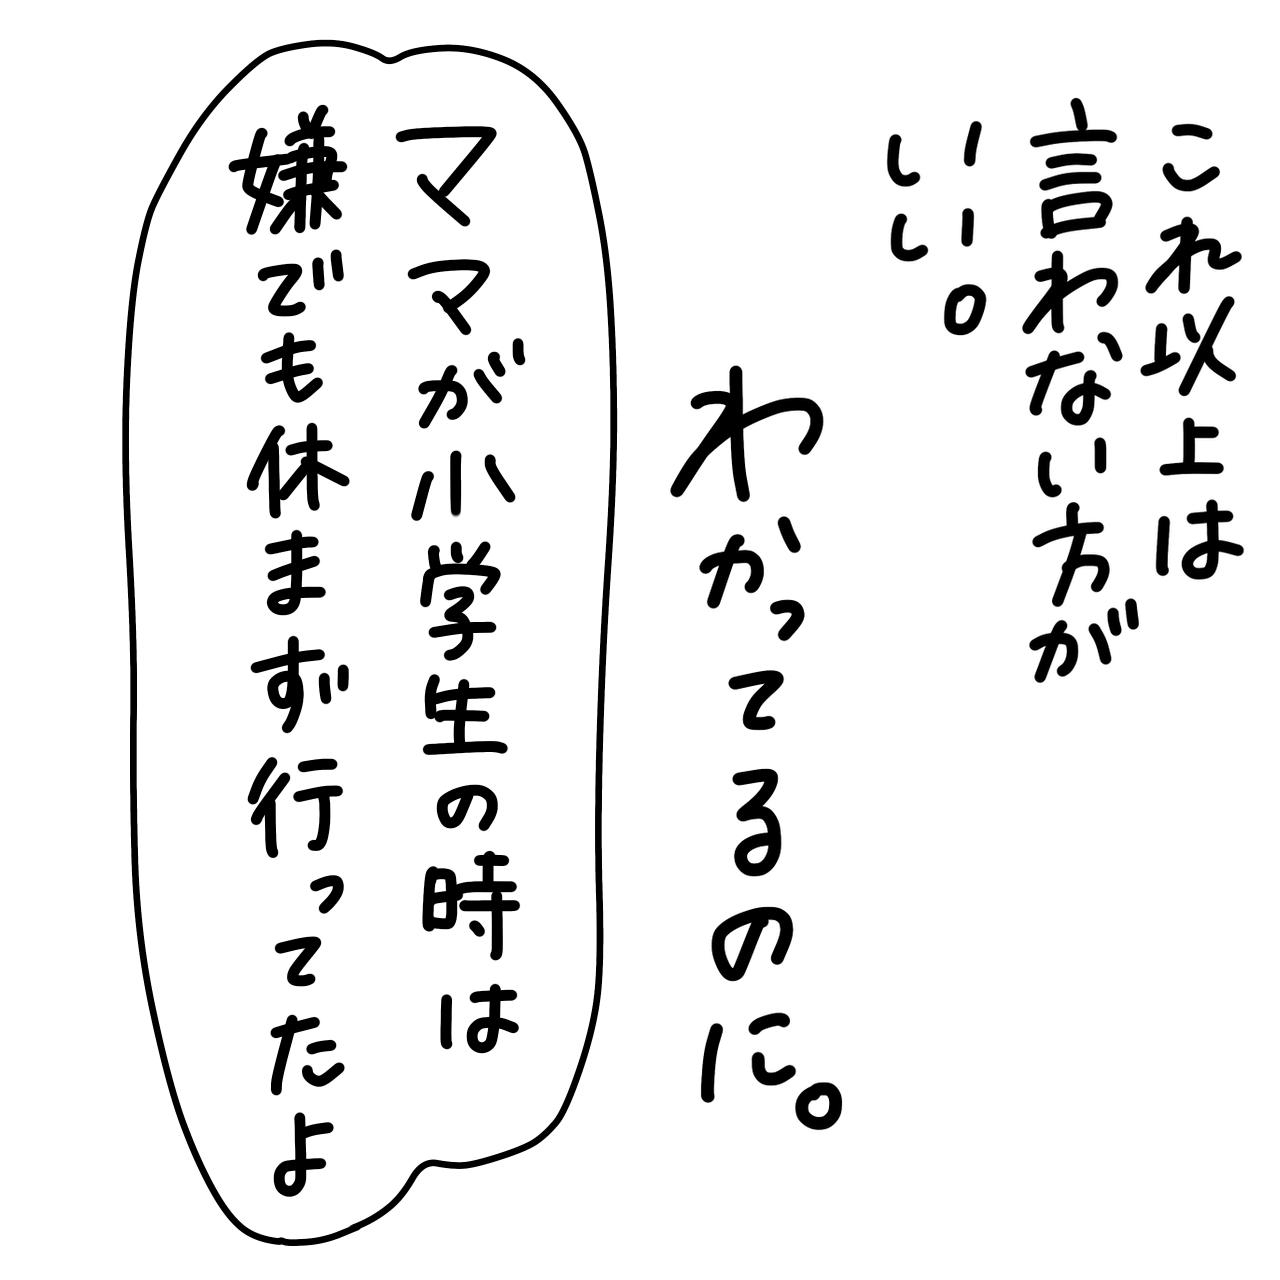 これ以上は
言わない方が
いい。
いい。
わかってるのに。
ママが小学生の時は
嫌でも休まず行ってたよ